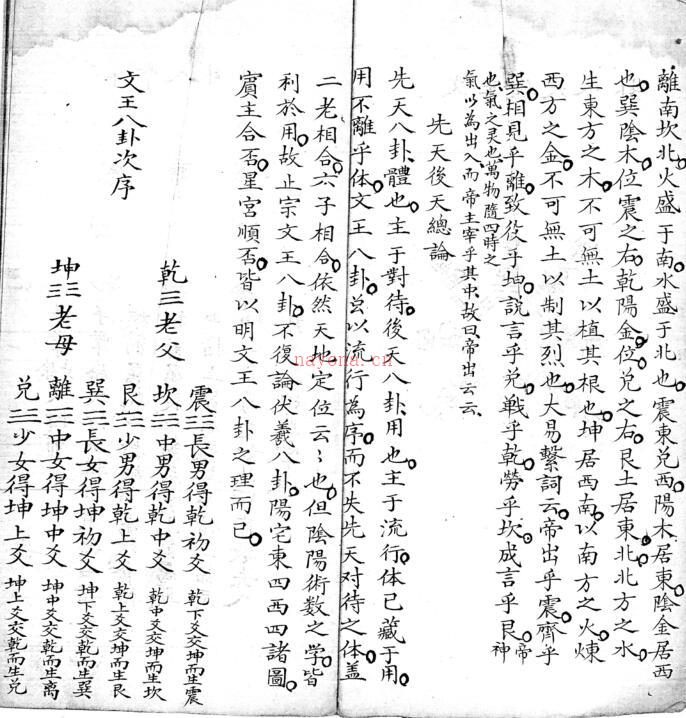 離南坎北火盛于南水盛于北也震東兌西陽木居東陰金居西
也巽陰木位震之右乾陽金位兌之右艮土居東北北方之水
生東方之木不可無土以植其根也坤居西南以南方之火煉
西方之金不可無土以制其烈也大易繫詞云帝出乎震齊乎
巽相見乎離致役乎坤說言乎兌戦乎乾勞乎坎成言乎艮帝神
也氣之灵也萬物隨四時之
氣以為出入而帝主宰乎其中故曰帝出云云
先天後天總論
先天八卦體也主于對待後天八卦用也主于流行体已藏于用
用不離乎体文王八卦㒷以流行為序而不失先天对待之体盖
二老相合六子相合依然天地定位云〻也但陰陽術数之学皆
利於用故止宗文王八卦不復論伏羲八卦陽宅東四西四諸圖
賓主合否星宮順否皆以明文王八卦之理而已
文王八卦次序
乾☰老父
坤☷老母
震☳長男得乾初爻 乾下爻交坤而生震
坎☵中男得乾中爻 乾中爻交坤而生坎
艮☶少男得乾上爻 乾上爻交坤而生艮
巽☴長女得坤初爻 坤下爻交乾而生巽
離☲中女得坤中爻 坤中爻交乾而生离
兌☱少女得坤上爻 坤上爻交乾而生兌
nayona.cn